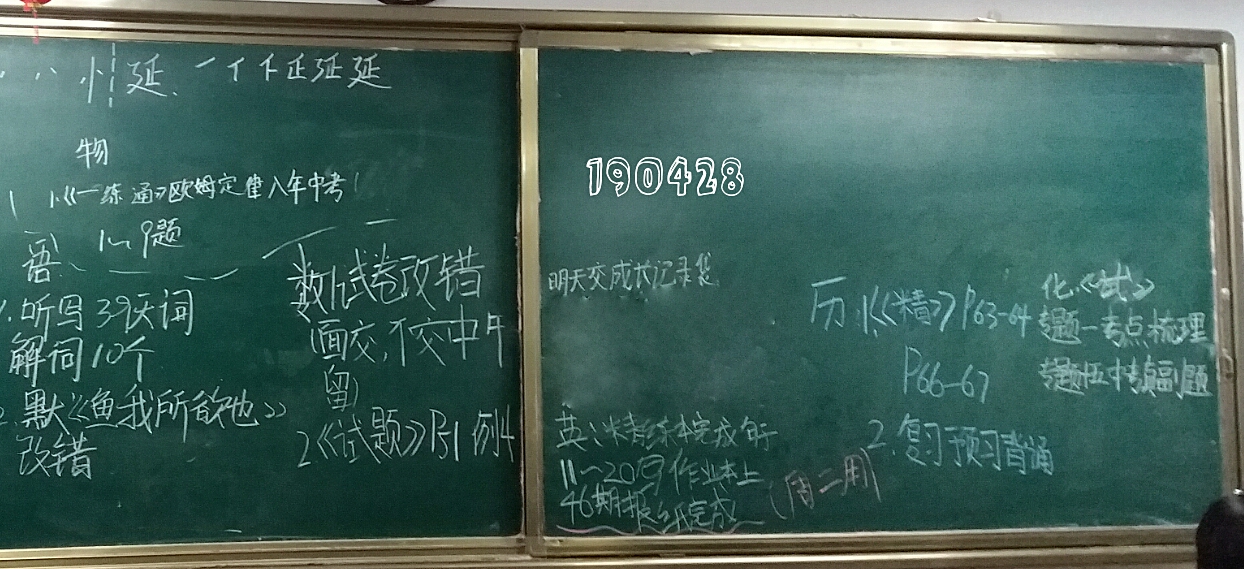 延、一丁下正延延
物
1.《一练通》欧姆定律八年中考
1~9题
语
1.听写39天词
解词10个
2.默《鱼我所欲也》
改错
数1.试卷改错
(面交,不交中午
留)
2《试题》P51例4
190428
明天交成长记录袋
英:精练本完成
11~20写作业本上
46期报纸完成
(周二用)
历.1.《精》P63-64
P66-67
2.复习预习背诵
化.《试》
专题一考点梳理
专题五中考 题